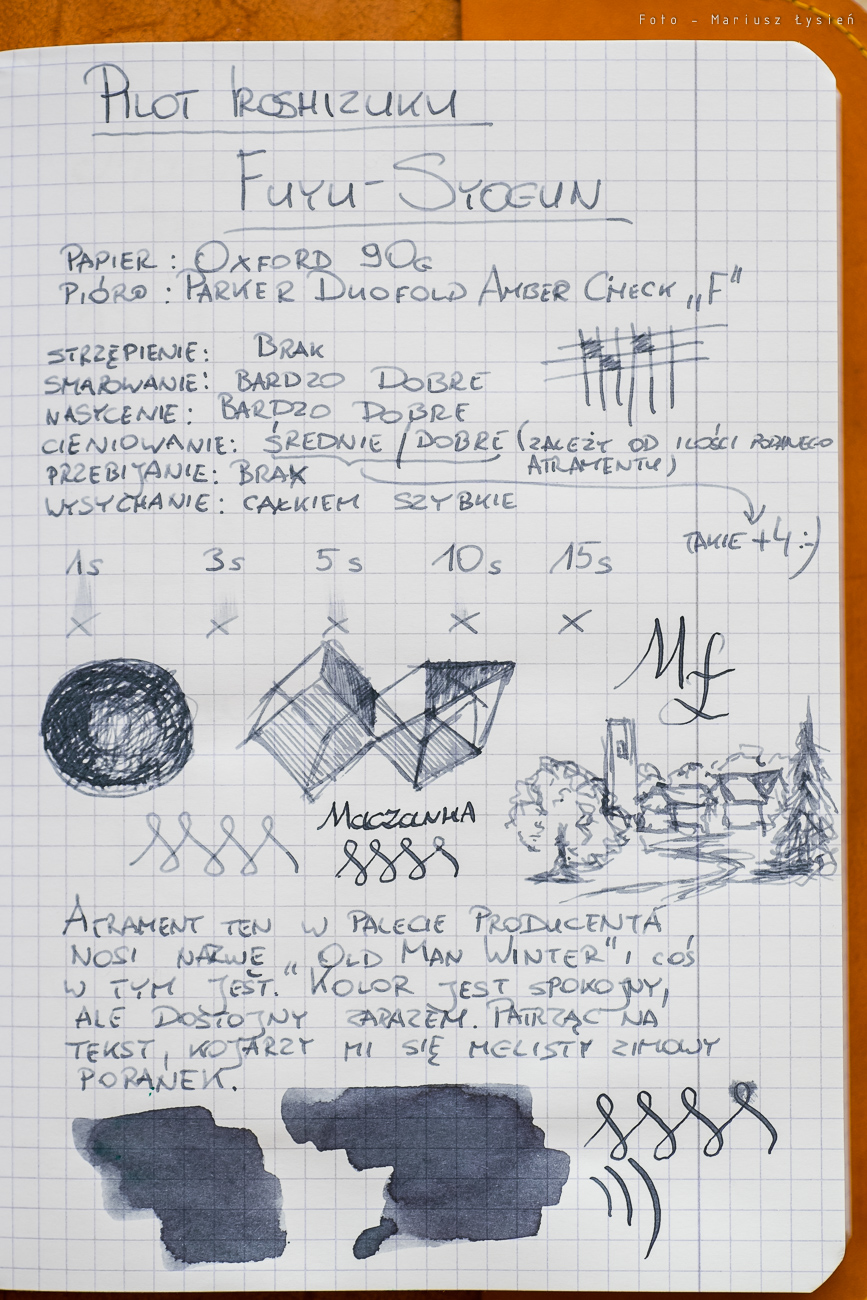 Foto - Mariusz Łysień
PILOT IROSHIZUKU
FUYU-SYOGUN
PAPIER : OXFORD 90G
PIÓRO : PARKER DUOFOLD AMBER CHECK „F"
STRZĘPIENIE: BRAK
SMAROWANIE: BARDZO DOBRE
NASYCENIE: BARDZO DOBRE
CIENIOWANIE: ŚREDNIE / DOBRE (ZALEŻY OD ILOŚCI PODANEGO
ATRAMENTU)
PRZEBIJANIE: BRAK
WYSYCHANIE: CAŁKIEM SZYBKIE
TAKIE +4 :-)
1s 3s 5s 10s 15s
x x x x x
MŁ
Maczanka
ATRAMENT TEN W PALECIE PRODUCENTA
NOSI NAZWĘ „OLD MAN WINTER" I COŚ
W TYM JEST." KOLOR JEST SPOKOJNY,
ALE DOSTOJNY ZARAZEM. PATRZĄC NA
TEKST, KOJARZY MI SIĘ MGLISTY ZIMOWY
PORANEK.